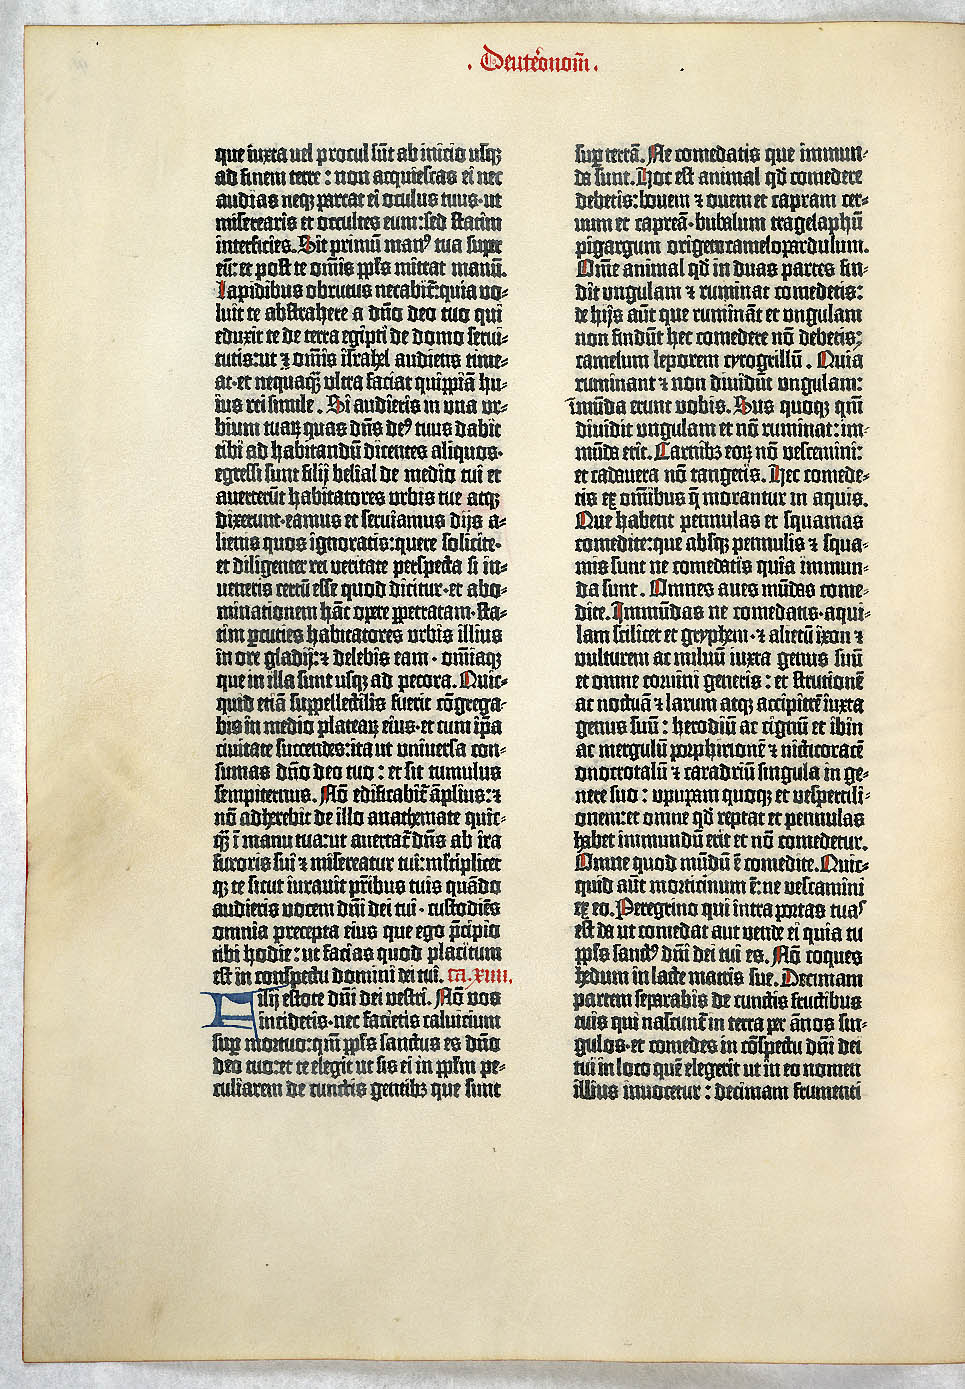 . Deuterōnom̄ .
que iuxta uel procul sūt ab inicio usqꝫ
ad finem terre : non acquiescas ei nec
audias neqꝫ parcat ei oculus tuus · ut
miserearis et occultes eum : sed statim
interficies. Sit primū manꝰ tua super
eū : et post te om̄is ppl̄s mittat manū.
Lapidibus obrutus necabit̄ : quia uo⸗
luit te abstrahere a dn̄o deo tuo qui
eduxit te de terra egipti de domo serui⸗
tutis : ut ⁊ om̄is isrl̄ audiens time⸗
at · et nequaq̄ꝫ ultra faciat quippiā hu⸗
ius rei simile . Si audieris in una ur⸗
bium tuaꝝ quas dn̄s deꝰ tuus dabit
tibi ad habitandū dicentes aliquos ·
egressi sunt filij belial de medio tui et
auerterūt habitatores urbis tue atqꝫ
dixerunt · eamus et seruiamus dijs a⸗
lienis quos ignoratis : quere solicite ·
et diligenter rei ueritate perspecta si in⸗
ueneris certū esse quod dicitur · et abo⸗
minationem hāc opere ꝑpetratam · sta⸗
tim ꝑcuties habitatores urbis illius
in ore gladij : ⁊ delebis eam · om̄iaqꝫ
que in illa sunt usqꝫ ad pecora. Quic⸗
quid etiā suppellectilis fuerit cōgrega⸗
bis in medio plateaꝝ eius · et cum ip̄a
ciuitate succendes : ita ut uniuersa con⸗
sumas dn̄o deo tuo : et sit tumulus
sempiternus. Nō edificabit̄ āplius : ⁊
nō adherebit de illo anathemate quic⸗
q̄ꝫ ī manu tua : ut auertat̄ dn̄s ab ira
furoris sui ⁊ misereatur tui : ml̄tiplicet
qꝫ te sicut iurauit pr̄ibus tuis quādo
audieris uocem dn̄i dei tui · custodiēs
omnia precepta eius que ego p̄cipio
tibi hodie : ut facias quod placitum
est in conspectu domini dei tui. ca. xiiii.
Filij estote dn̄i dei uestri. Nō uos
incidetis · nec facietis caluicium
suꝑ mortuo : qm̄ ppl̄s sanctus es dn̄o
deo tuo : et te elegit ut sis ei in ppl̄m pe⸗
culiarem de cunctis gentibꝫ que sunt
suꝑ terrā. Ne comedatis que immun⸗
da sunt. Hoc est animal qd̄ comedere
debetis : bouem ⁊ ouem et capram cer⸗
uum et capreā · bubalum tragelaphū
pigargum origem camelopardulum.
Om̄e animal qd̄ in duas partes fin⸗
dit ungulam ⁊ ruminat comedetis :
de hijs aūt que rumināt et ungulam
non findūt hec comedere nō debetis :
camelum leporem cyrogrillū . Quia
ruminant ⁊ non diuidūt ungulam :
īmūda erunt uobis. Sus quoqꝫ qm̄
diuidit ungulam et nō ruminat : im⸗
mūda erit. Carnibꝫ eoꝝ nō uescemini :
et cadauera nō tangetis. Hec comede⸗
tis ex om̄ibus q̄ morantur in aquis.
Que habent pennulas et squamas
comedite : que absqꝫ pennulis ⁊ squa⸗
mis sunt ne comedatis quia immun⸗
da sunt . Omnes aues mūdas come⸗
dite. Immūdas ne comedatis · aqui⸗
lam scilicet et gryphem · ⁊ alietū ixon ⁊
uulturem ac miluū iuxta genus suū
et omne coruini generis : et strutionē
ac noctuā ⁊ larum atqꝫ accipitrē iuxta
genus suū : herodiū ac cignū et ibin
ac mergulū porphirionē ⁊ nicticoracē
onocrotalū ⁊ caradriū singula in ge⸗
nere suo : upupam quoqꝫ et uespertili⸗
onem : et omne qd̄ reptat et pennulas
habet immundū erit et nō comedetur.
Omne quod mūdū ē comedite. Quic⸗
quid aūt morticinum ē : ne uescamini
ex eo. Peregrino qui intra portas tuas
est da ut comedat aut uende ei quia tu
ppl̄s sanctꝰ dn̄i dei tui es. Nō coques
hedum in lacte matris sue. Decimam
partem separabis de cunctis fructibus
tuis qui nascunt̄ in terra per ānos sin⸗
gulos · et comedes in cōspectu dn̄i dei
tui in loco quē elegerit ut in eo nomen
illius inuocetur : decimam frumenti